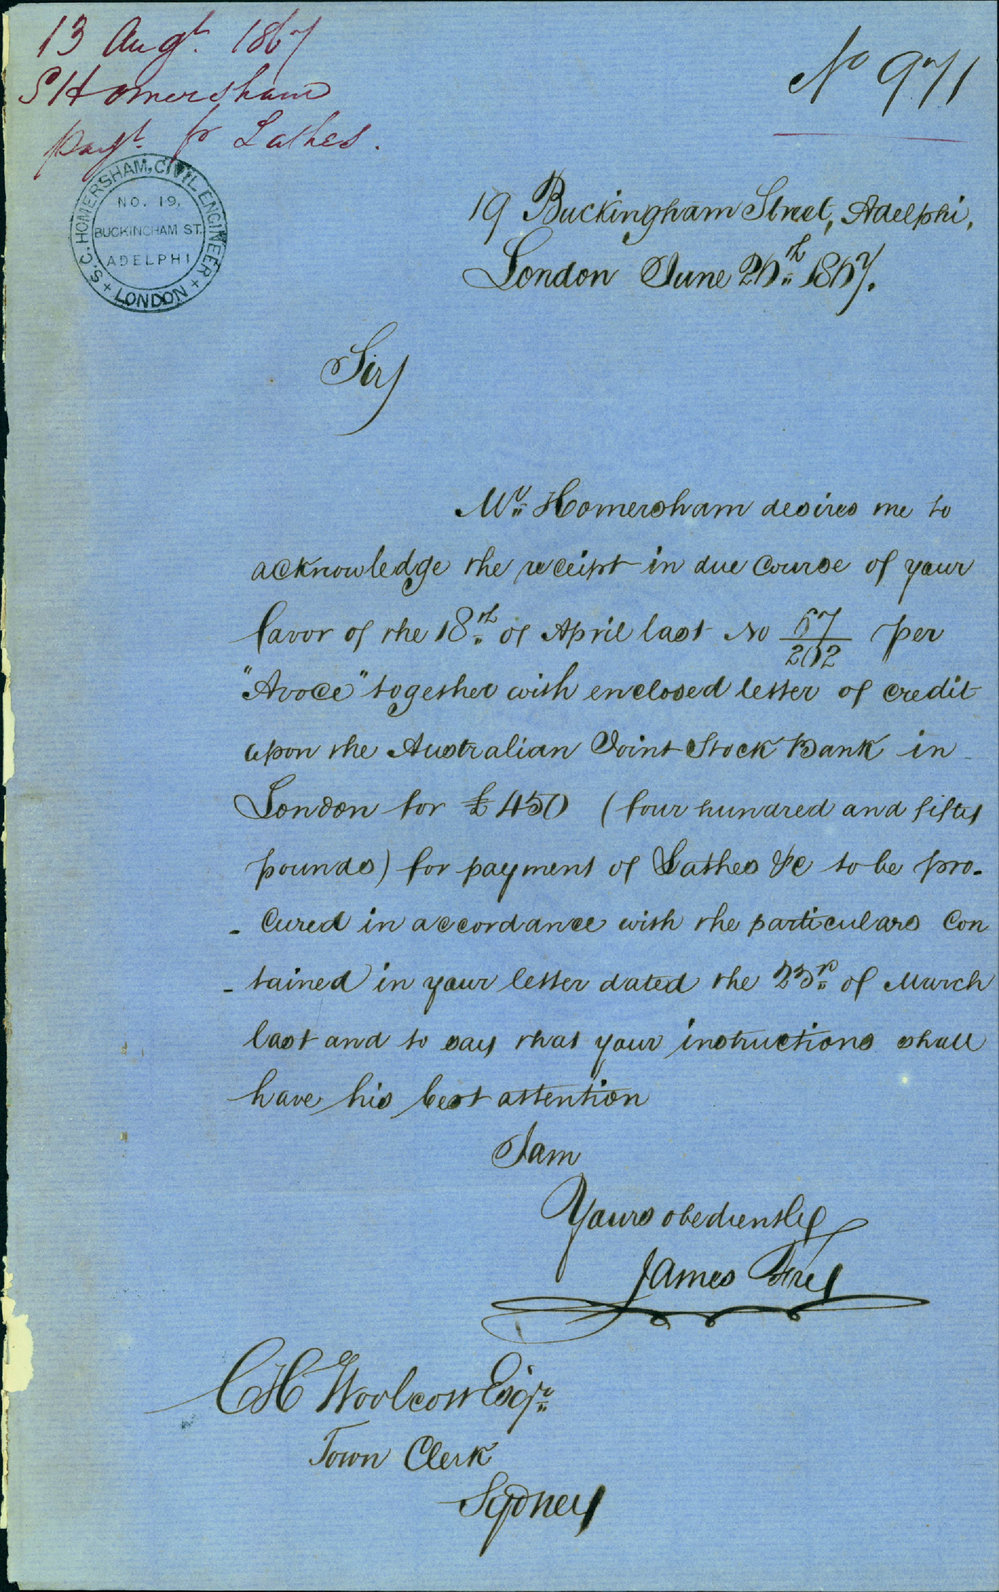 13 Augt. 1867
S Homersham
payt. for Lathes.
No 971
S. C. HOMERSHAM, CIVIL ENGINEER
NO. 19,
BUCKINGHAM ST.
ADELPHI
LONDON
19 Buckingham Street, Adelphi,
London June 26th 1867.
Sir
Mr Homersham desires me to
acknowledge the receipt in due course of your
favor of the 18th of April last No 67/202 per
"Avoca" together with enclosed letter of credit
upon the Australian Joint Stock Bank in
London for £450 (four hundred and fifty
pounds) for payment of Lathes &c to be pro-
-cured in accordance with the particulars con
-tained in your letter dated the 23rd of March
last and to say that your instructions shall
have his best attention
I am
Yours obediently
James
C H Woolcott Esqre
Town Clerk
Sydney